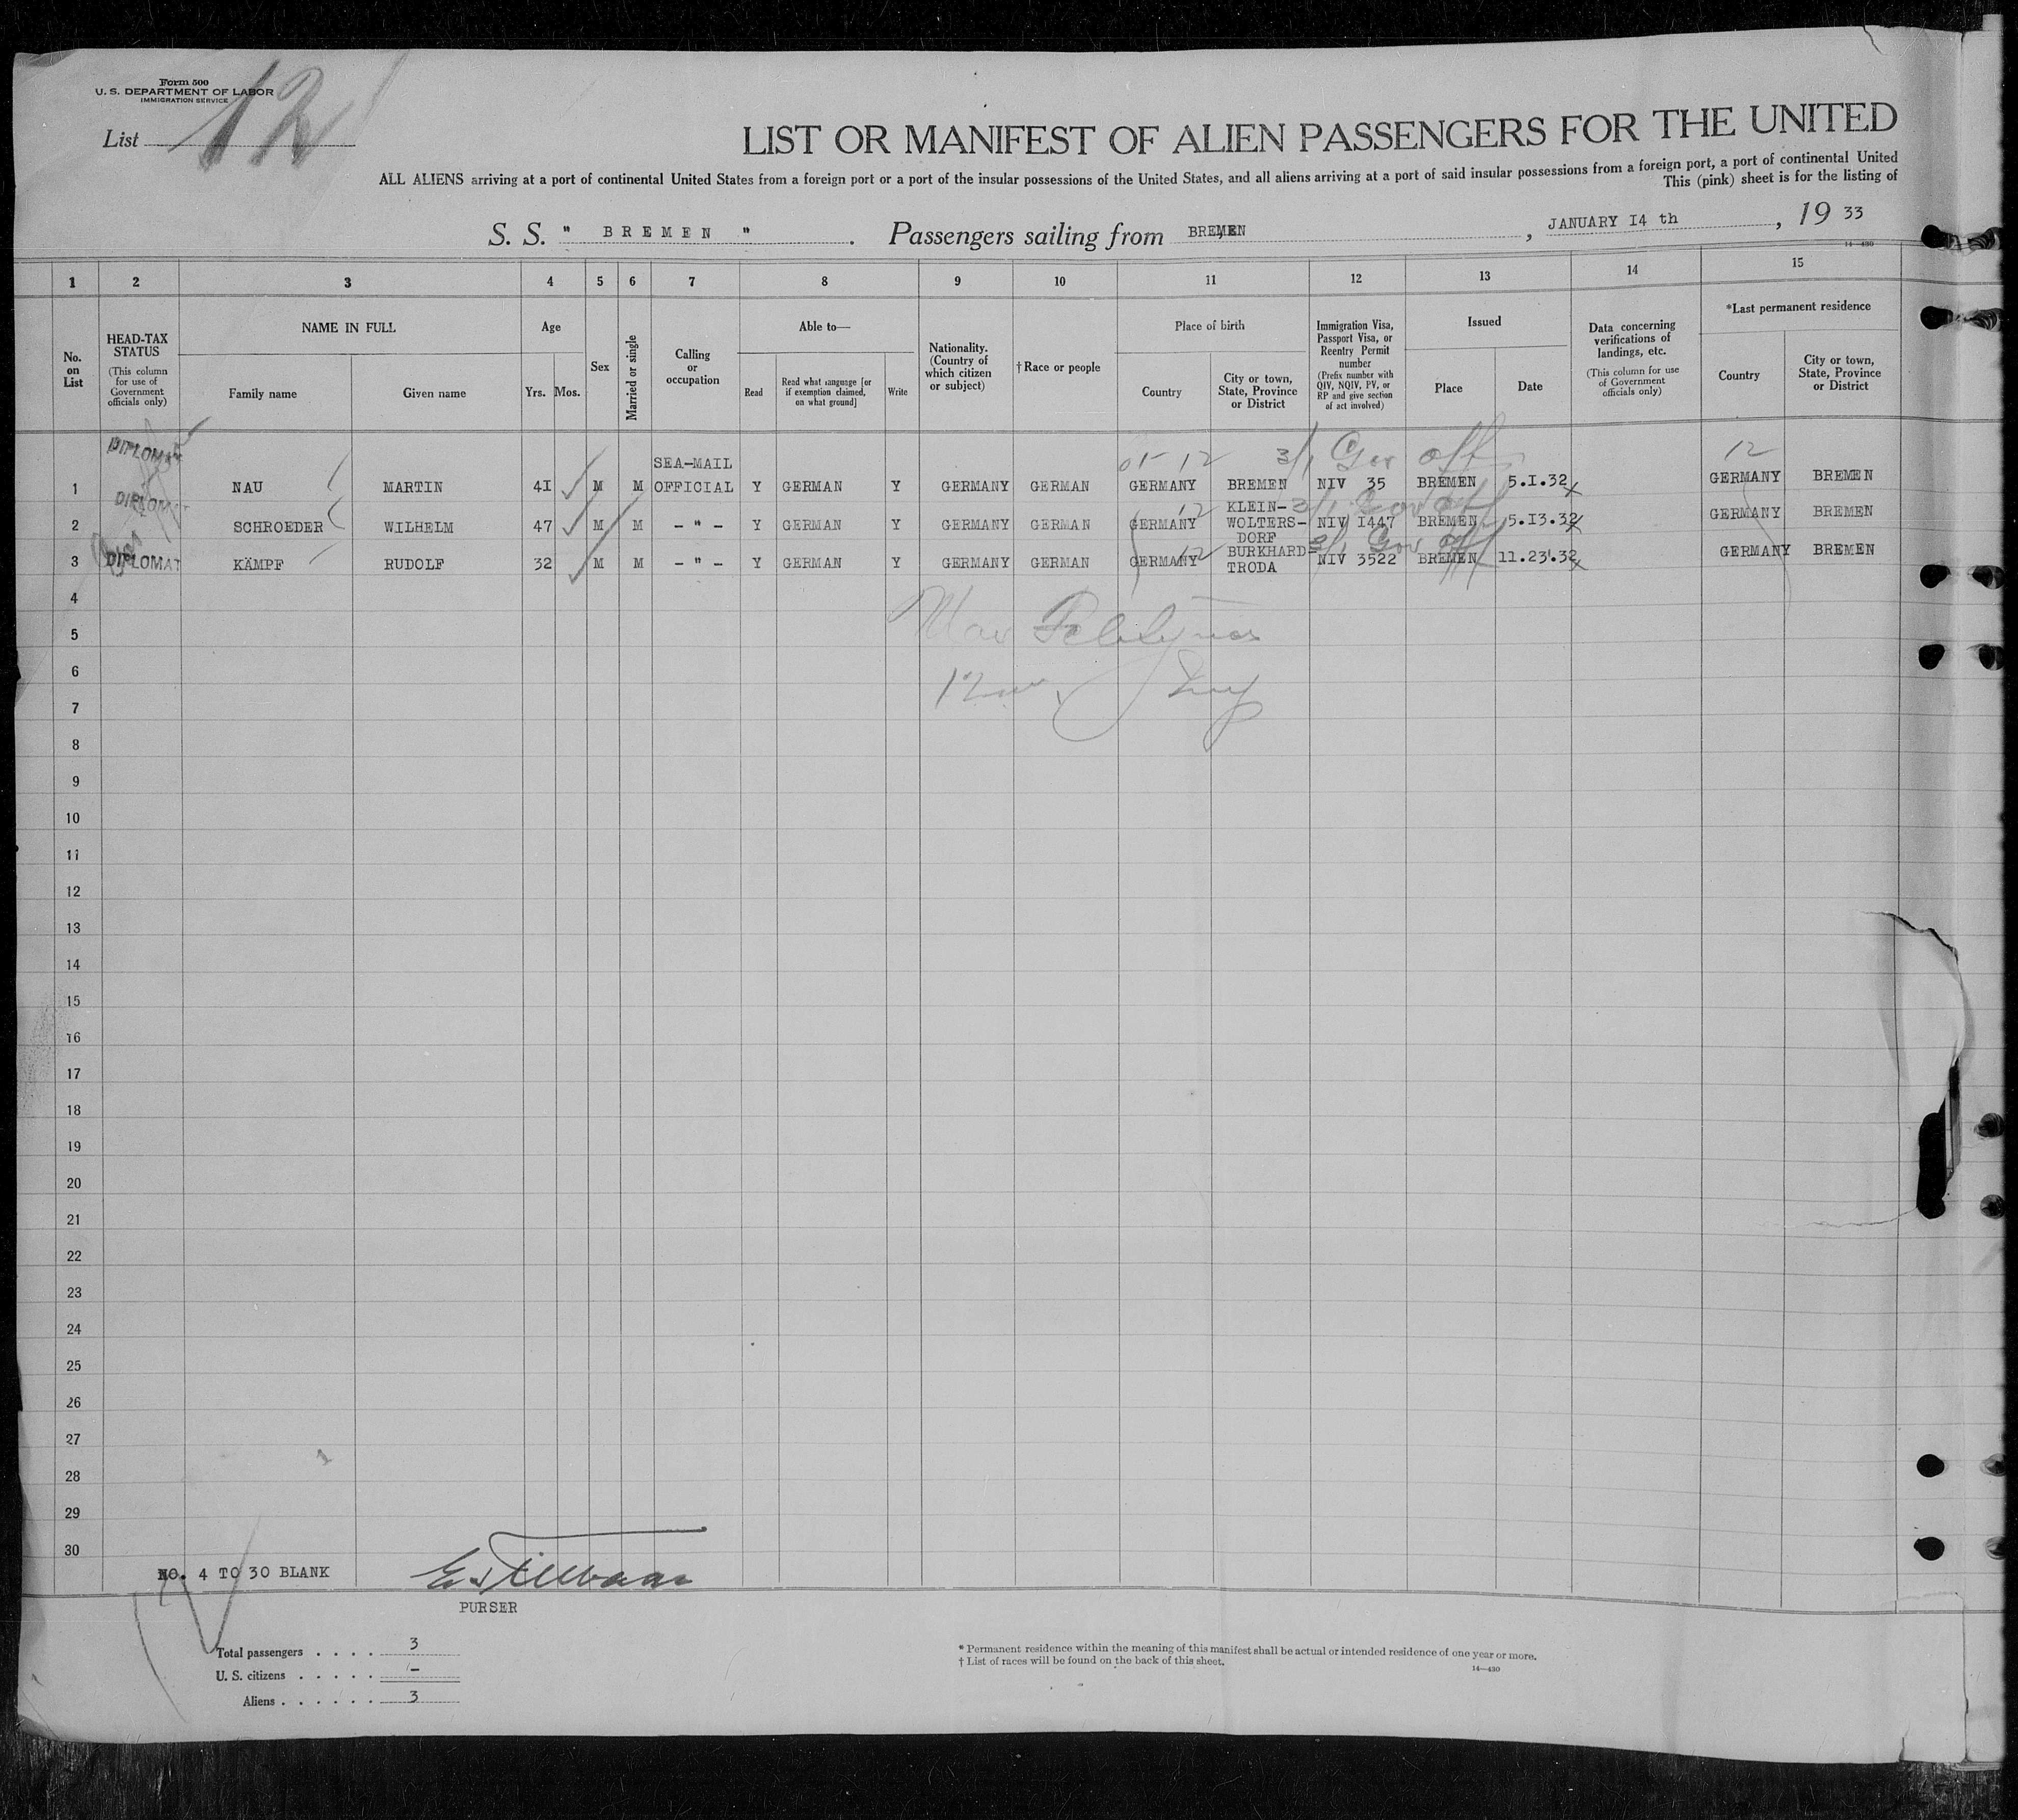 Form 500
U. S. DEPARTMENT OF LABOR
IMMIGRATION SERVICE
List 12
LIST OR MANIFEST OF ALIEN PASSENGERS FOR THE UNITED
ALL ALIENS arriving at a port of continental United States from a foreign port or a port of the insular possessions of the United States, and all aliens arriving at a port of said insular possessions from a foreign port, a port of continental United
This (pink) sheet is for the listing of
S. S. " BREMEN " . Passengers sailing from BREMEN , JANUARY I4 th , 19 33
14—430
1 2 3 4 5 6 7 8 9 10 11 12 13 14 15
No. on List
HEAD-TAX STATUS
(This column for use of Government officials only)
NAME IN FULL
Family name
Given name
Age
Yrs. Mos.
Sex
Married or single
Calling or occupation
Able to—
Read
Read what language [or if exemption claimed, on what ground]
Write
Nationality. (Country of which citizen or subject)
† Race or people
Place of birth
Country
City or town, State, Province or District
Immigration Visa, Passport Visa, or Reentry Permit number
(Prefix number with QIV, NQIV, PV, or RP and give section of act involved)
Issued
Place
Date
Data concerning verifications of landings, etc.
(This column for use of Government officials only)
*Last permanent residence
Country
City or town, State, Province or District
DIPLOMAT 05 12 3/1 Gov off 12
SEA-MAIL
1 NAU MARTIN 4I M M OFFICIAL Y GERMAN Y GERMANY GERMAN GERMANY BREMEN NIV 35 BREMEN 5.I.32 GERMANY BREMEN
DIPLOMAT 12 KLEIN- 3/1 Gov off
2 SCHROEDER WILHELM 47 M M - " - Y GERMAN Y GERMANY GERMAN GERMANY WOLTERS- NIV I447 BREMEN 5.I3.32 GERMANY BREMEN
DORF 3/1 Gov off
12 BURKHARD-
3 DIPLOMAT KÄMPF RUDOLF 32 M M - " - Y GERMAN Y GERMANY GERMAN GERMANY TRODA NIV 3522 BREMEN 11.23.32 GERMANY BREMEN
4
5
6
7
8
9
10
11
12
13
14
15
16
17
18
19
20
21
22
23
24
25
26
27
28
29
30
NO. 4 TO 30 BLANK
PURSER
Total passengers . . . . 3
U. S. citizens . . . . . -
Aliens . . . . . . 3
* Permanent residence within the meaning of this manifest shall be actual or intended residence of one year or more.
† List of races will be found on the back of this sheet.
14—430